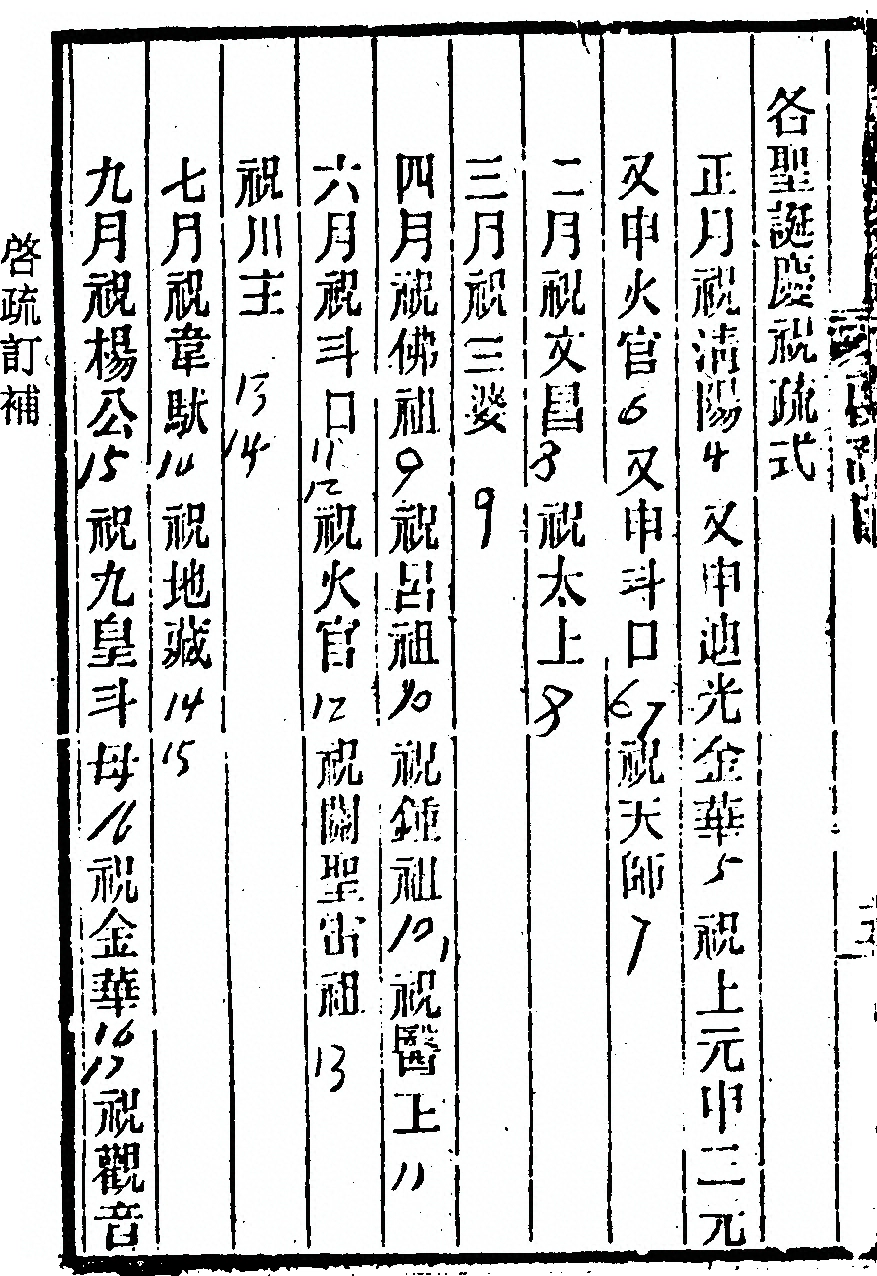 各聖誕慶祝疏式
正月祝清陽4 又申池光金華5 祝上元申二元
又申火官6 又申斗口67 祝天師7
二月祝文昌8 祝太上8
三月祝三婆9
四月祝佛祖9 祝呂祖10 祝鍾祖10,11 祝醫王11
六月祝斗口11 12 祝火官12 祝關聖雷祖13
祝川主13 14
七月祝韋馱14 祝地藏14 15
九月祝楊公15 祝九皇斗母16 祝金華16 17 祝觀音
啓疏訂補